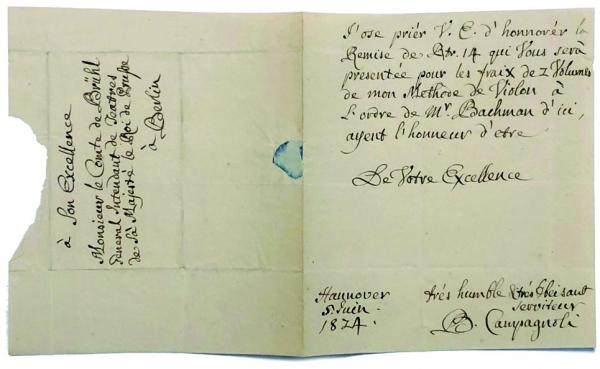 à Son Excellence
Monsieur le Comte de Brühl
General Intendant de Teatres
de Sà Majesté le Roi de Prusse
à Berlin
J'ose priér V. E. d'honnorér la
Remise de Rtr. 14 qui Vous serà
presentée pour les fraix de 2 Volumes
de mon Methode de Violon à
L'ordre de Mr. Bachman d'ici,
ayent l'honneur d'etre
De Votre Excellence
Hannover
5. Juin.
1824.
trés humble & trés Obeisant
serviteur
B. Campagnoli